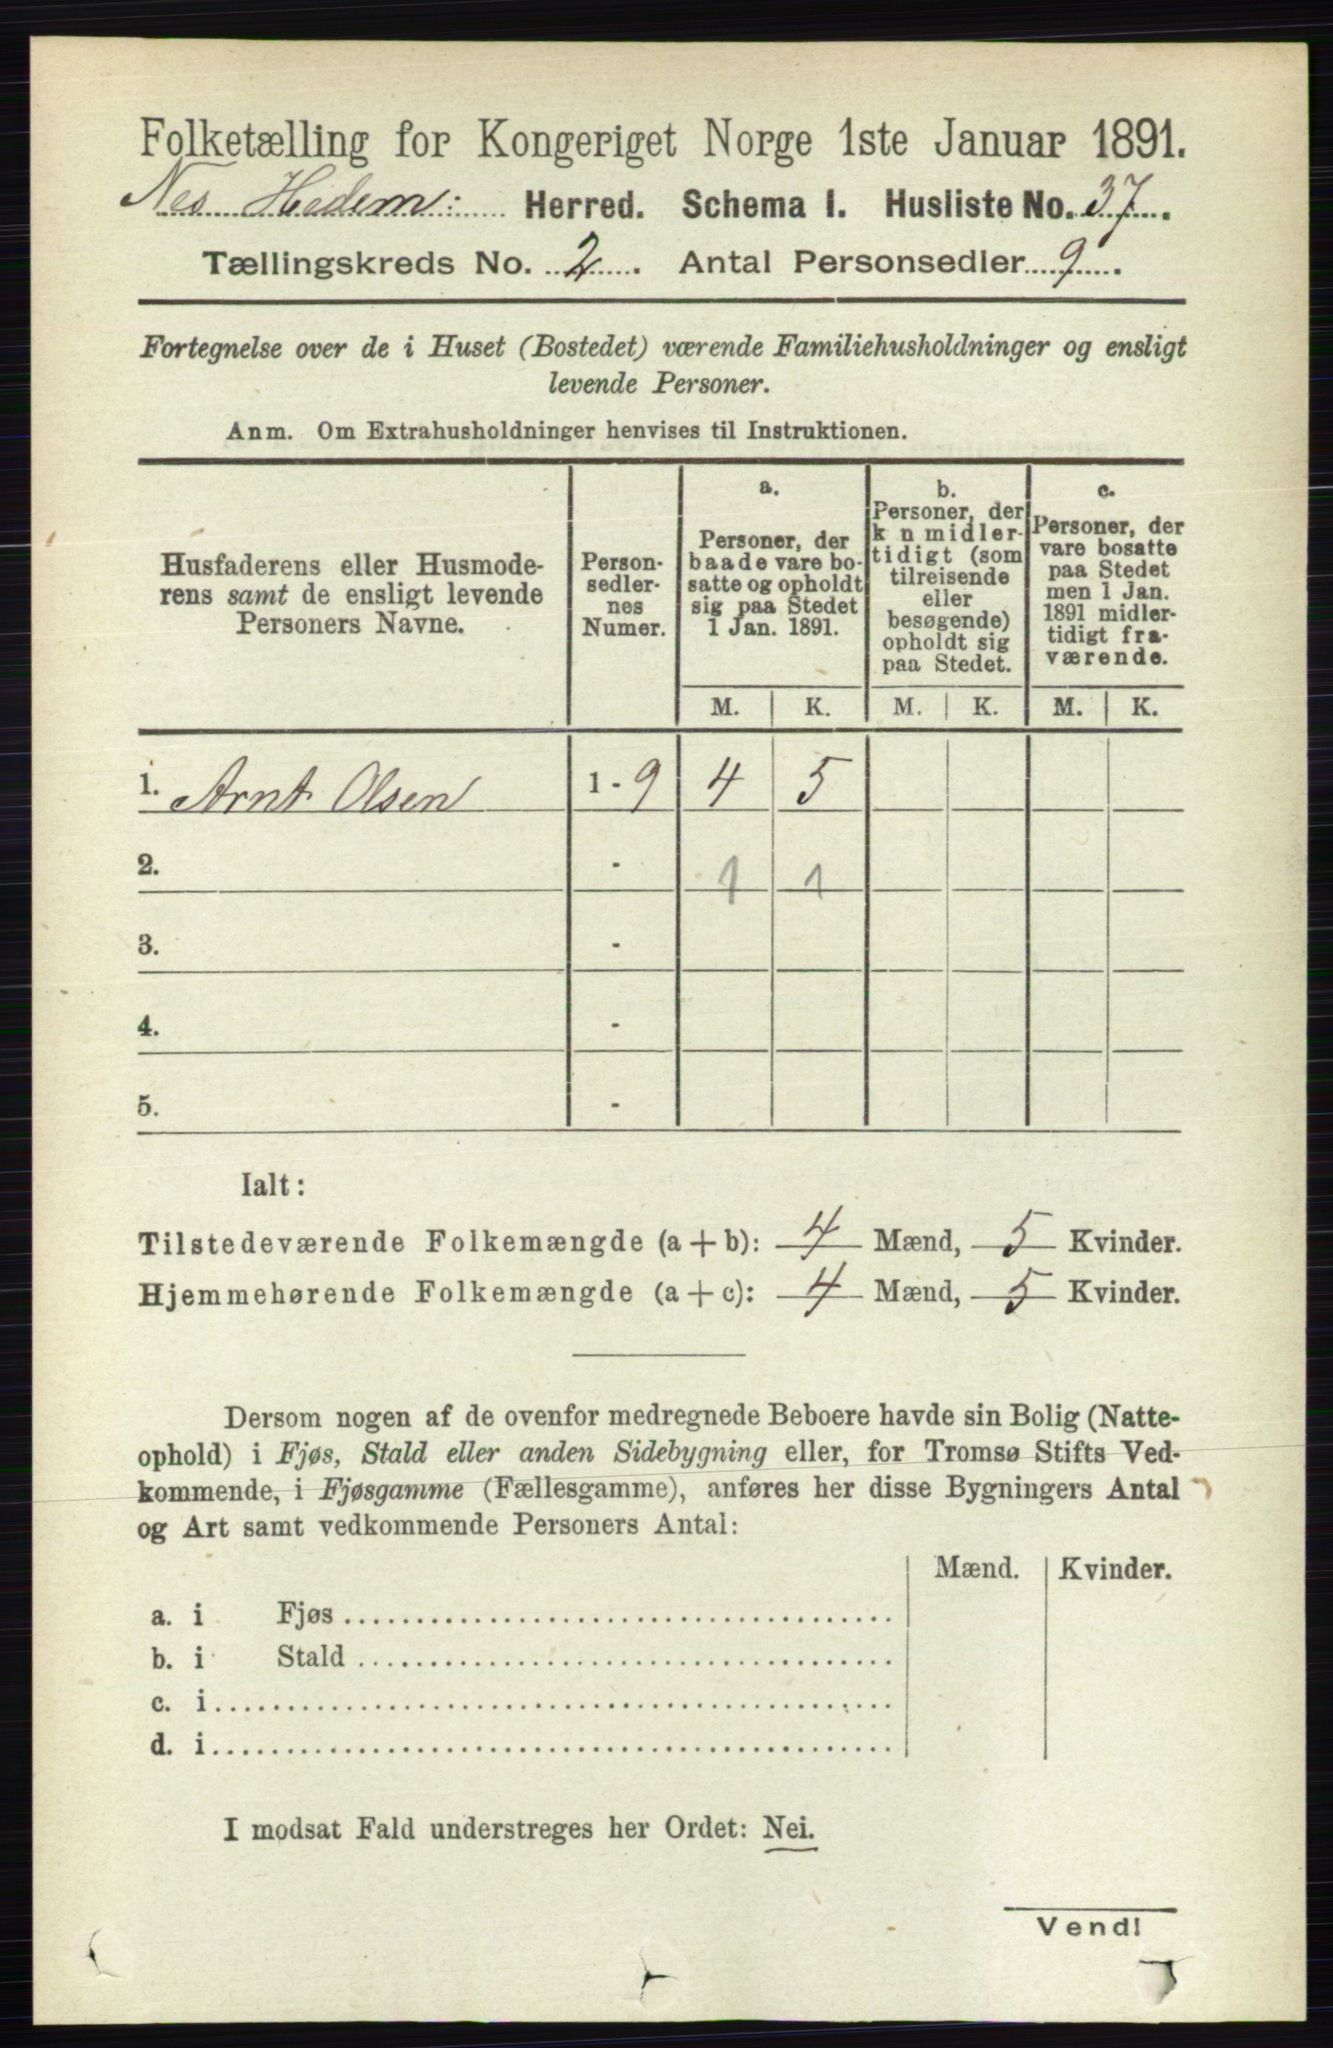 Folketælling for Kongeriget Norge 1ste Januar 1891.
Nes Hedem: Herred. Schema I. Husliste No. 37.
Tællingskreds No. 2. Antal Personsedler 9.
Fortegnelse over de i Huset (Bostedet) værende Familiehusholdninger og ensligt
levende Personer.
Anm. Om Extrahusholdninger henvises til Instruktionen.
Husfaderens eller Husmode-
rens samt de ensligt levende
Personers Navne.
Person-
sedler-
nes
Numer.
a.
Personer, der
baade vare bo-
satte og opholdt
sig paa Stedet
1 Jan. 1891.
b.
Personer, der
k n midler-
tidigt (som
tilreisende
eller
besøgende)
opholdt sig
paa Stedet.
c.
Personer, der
vare bosatte
paa Stedet
men 1 Jan.
1891 midler-
tidigt fra-
værende.
M. K. M. K. M. K.
1. Arnt Olsen 1 - 9 4 5
2. - 1 1
3. -
4. -
5. -
Ialt:
Tilstedeværende Folkemængde (a + b): 4 Mænd, 5 Kvinder.
Hjemmehørende Folkemængde (a + c): 4 Mænd, 5 Kvinder.
Dersom nogen af de ovenfor medregnede Beboere havde sin Bolig (Natte-
ophold) i Fjøs, Stald eller anden Sidebygning eller, for Tromsø Stifts Ved-
kommende, i Fjøsgamme (Fællesgamme), anføres her disse Bygningers Antal
og Art samt vedkommende Personers Antal:
Mænd. Kvinder.
a. i Fjøs
b. i Stald
c. i
d. i
I modsat Fald understreges her Ordet: Nei.
Vend!